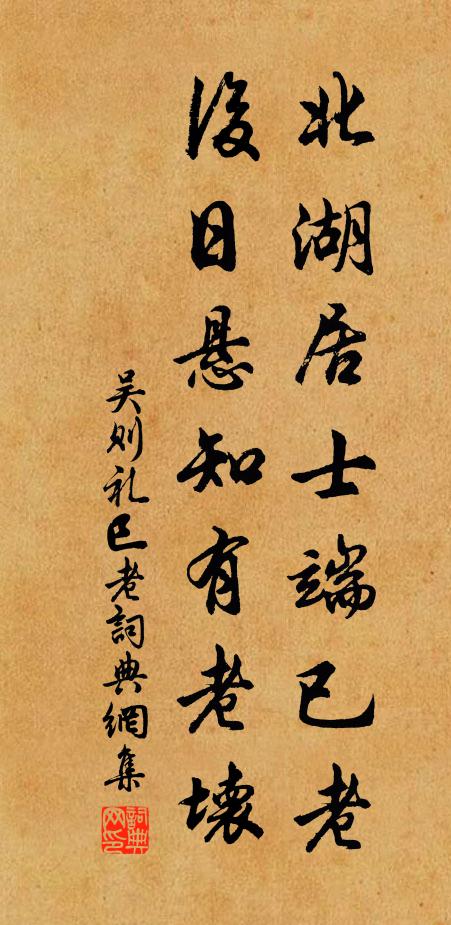 北湖居士端已老
後日悬知有老壞
吴则礼已老詞典網集
詞典網印